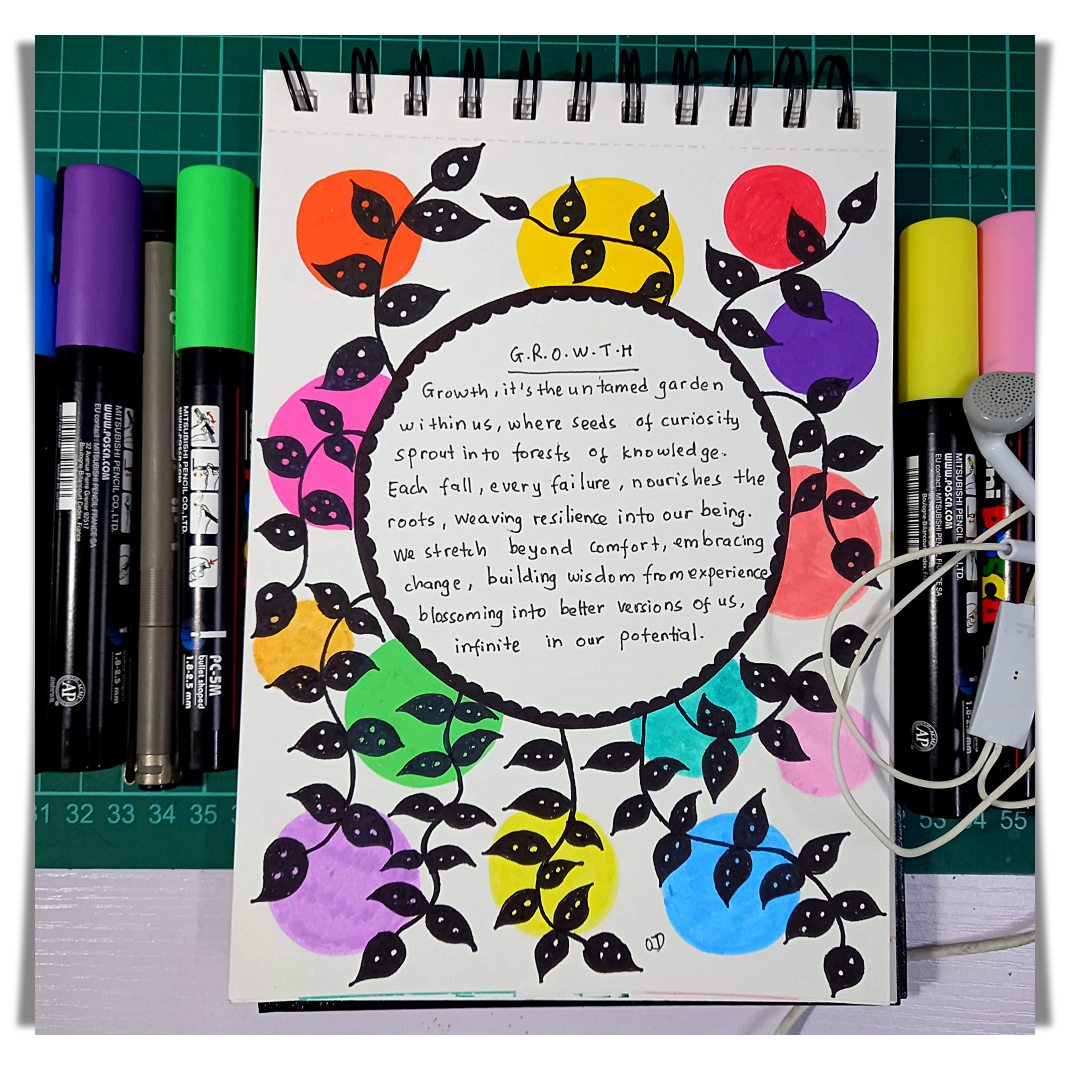 G.R.O.W.T.H
Growth, it's the untamed garden
within us, where seeds of curiosity
sprout into forests of knowledge.
Each fall, every failure, nourishes the
roots, weaving resilience into our being.
We stretch beyond comfort, embracing
change, building wisdom from experience
blossoming into better versions of us,
infinite in our potential.
OD
MITSUBISHI PENCIL CO., LTD.
WWW.POSCA.COM
EU contact: MITSUBISHI PENCIL FRANCE SA
AP
MITSUBISHI PENCIL CO., LTD.
PC-5M
bullet shaped
1.8-2.5 mm
MITSUBISHI PENCIL CO., LTD.
WWW.POSCA.COM
AP
uni
31 32 33 34 35
53 54 55